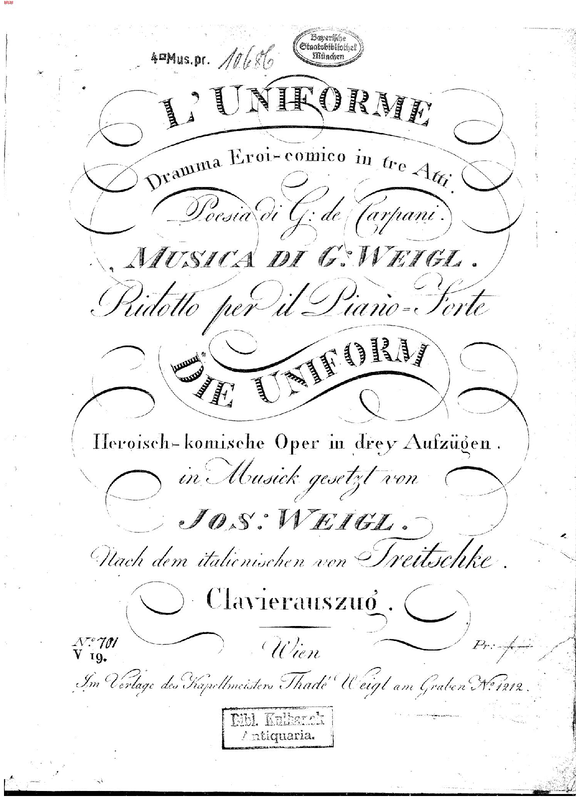 4° Mus.pr. 10686
Bayerische
Staatsbibliothek
München
L' UNIFORME
Dramma Eroi-comico in tre Atti.
Poesia di G: de Carpani.
MUSICA DI G: WEIGL.
Ridotto per il Piano=Forte
DIE UNIFORM
Heroisch-komische Oper in drey Aufzügen.
in Musick gesetzt von
JOS: WEIGL.
Nach dem italienischen von Treitschke.
Clavierauszug.
No. 701
V 19.
Wien
Pr:
Im Verlage des Kapellmeisters Thadé Weigl am Graben No. 1212.
Bibl. Kulbanek
Antiquaria.